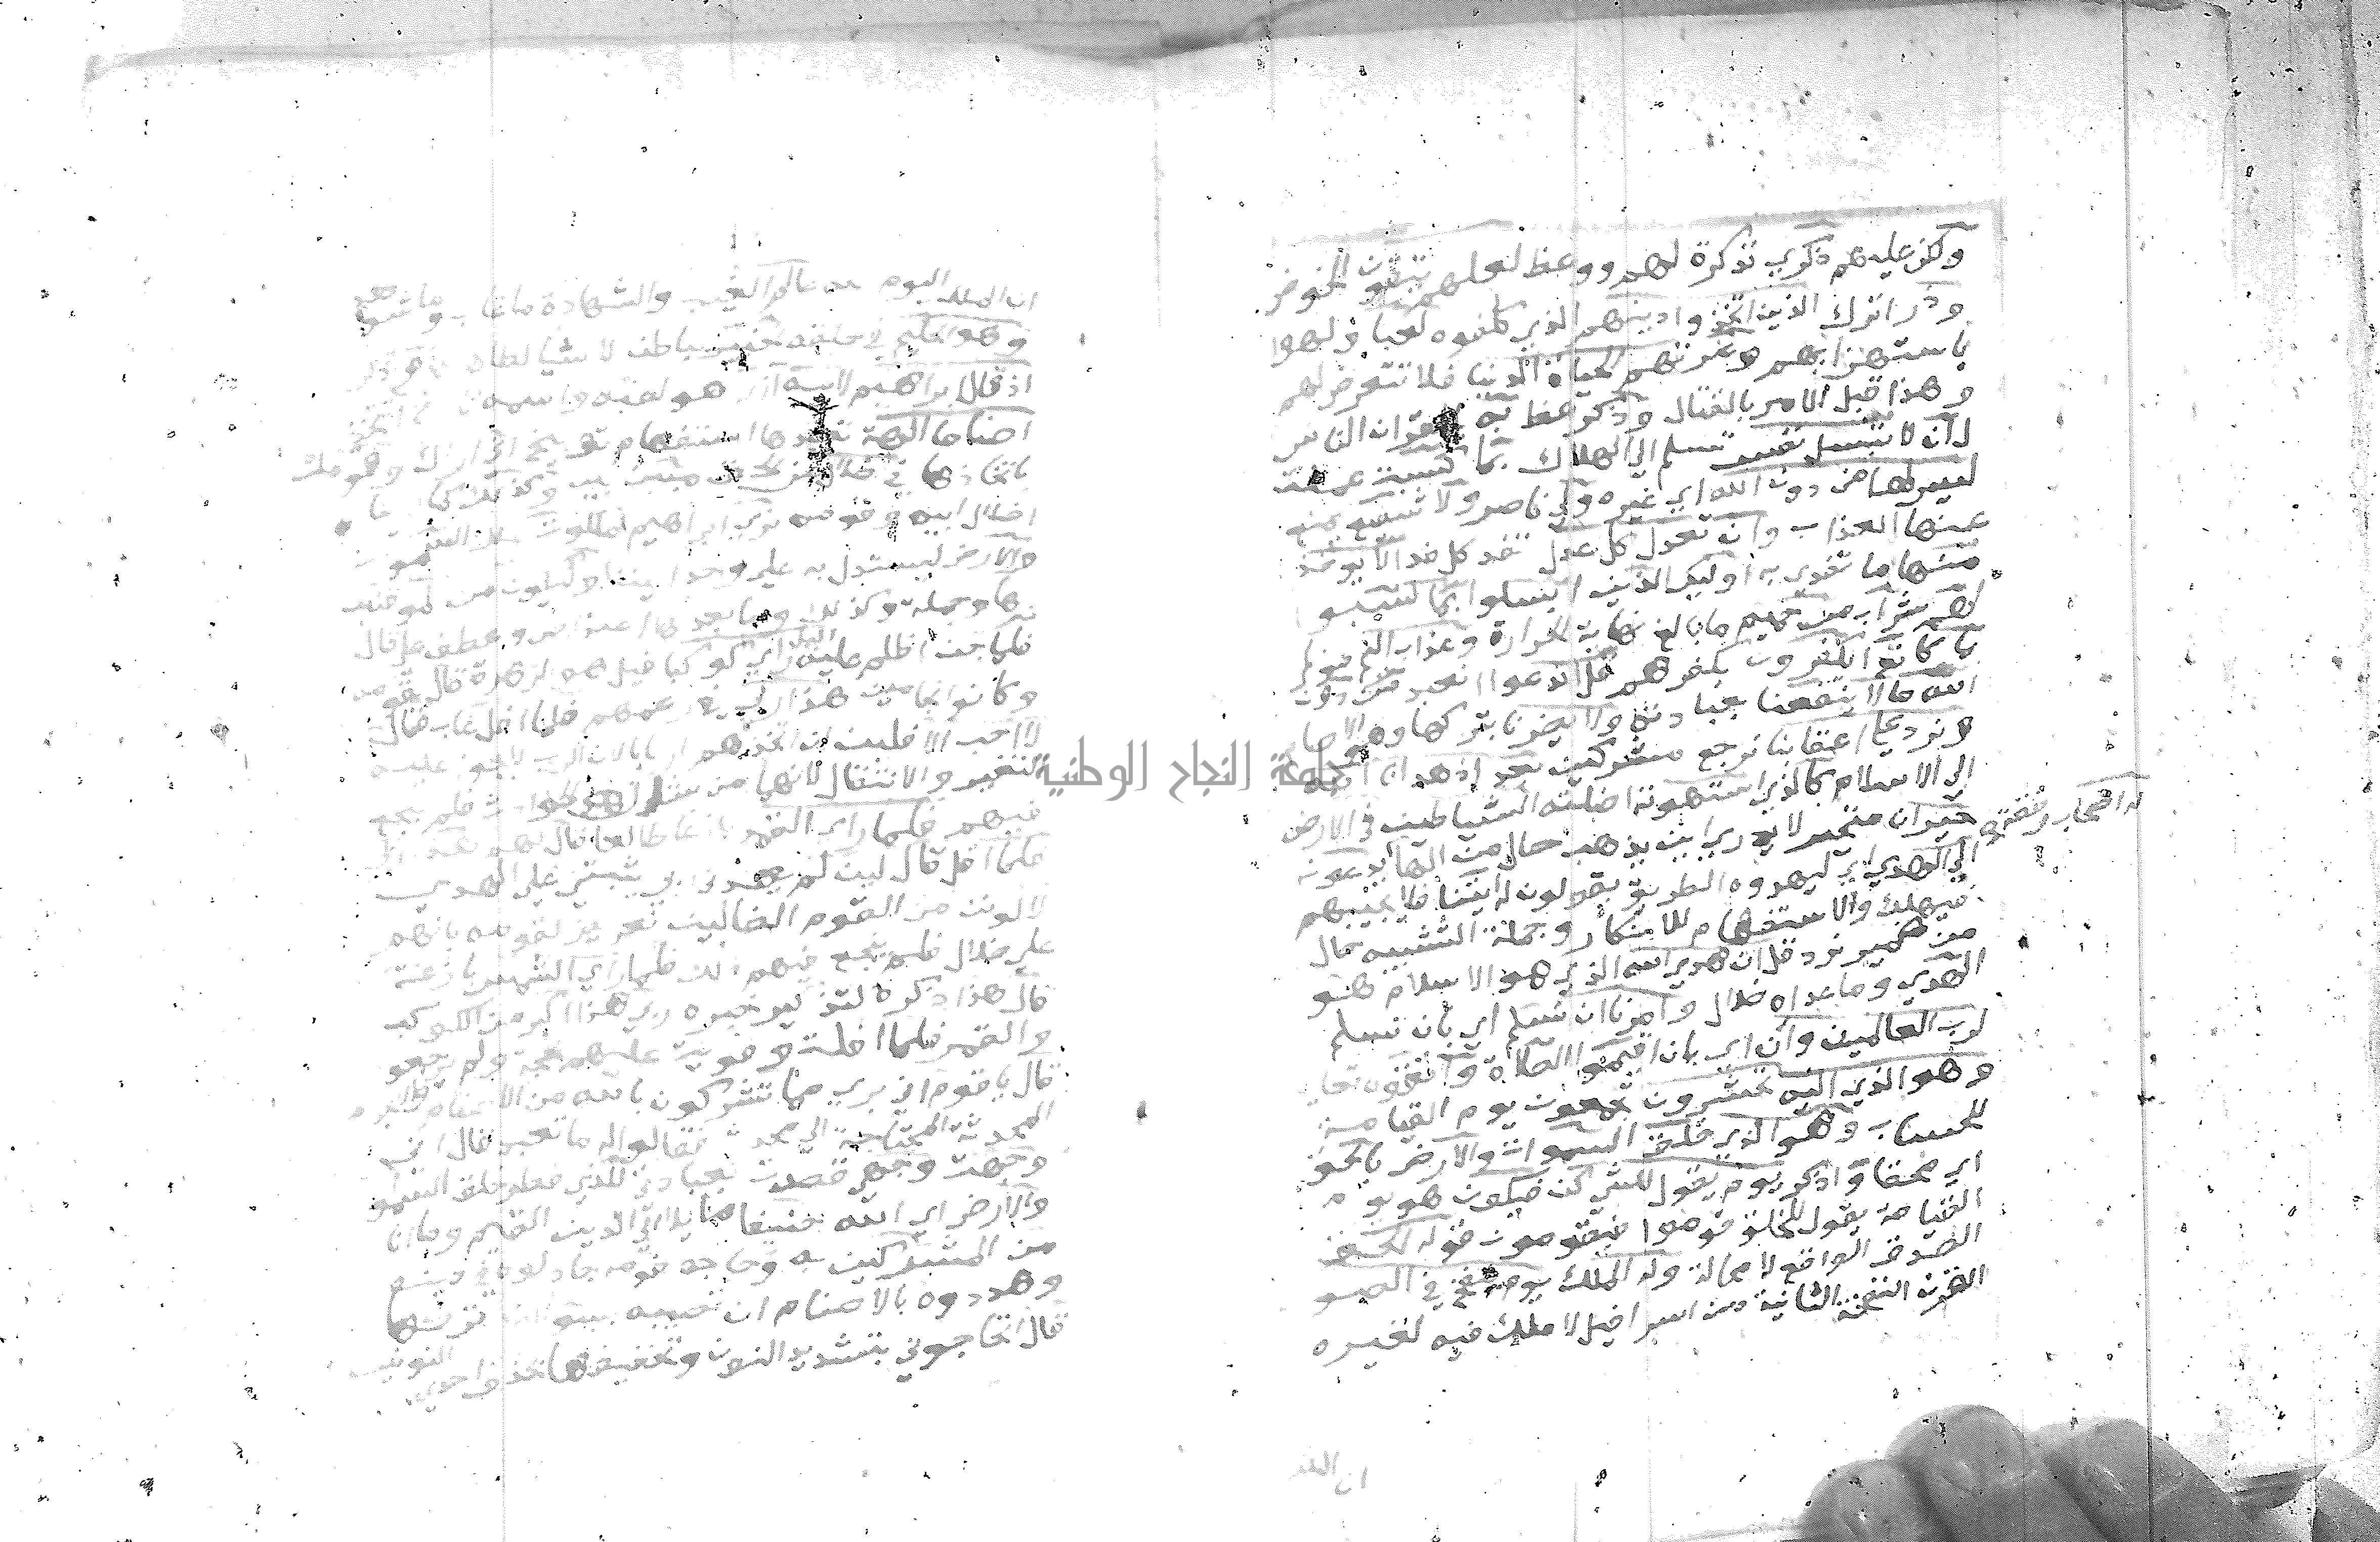 ولكن عليهم ذكري تذكرة لهم ووعظ لعلهم يتقون الخوض
وذر اترك الذين اتخذوا دينهم الذي كلفوه لعبا ولهوا
باستهزايهم وغرتهم الحياة الدنيا فلا تتعرض لهم
وهذا قبل الامر بالقتال وذكر عظ به القران الناس
لان لا تبسل نفس تسلم الي الهلاك بما كسبت عملت
ليس لها من دون الله اي غيره ولي ناصر ولا شفيع يمنع
عنها العذاب وان تعدل كل عدل تفد كل فدا لا يوخذ
منها ما تفدي به اوليك الذين ابسلوا بما كسبو
لهم شراب من حميم ما بالغ نهاية الحرارة وعذاب اليم مولم
بما كانوا يكفرون بكفرهم قل اندعوا انعبد من دون
الله ما لا ينفعنا بعبادته ولا يضرنا بتركها وهو الاصنام
ونرد علي اعقابنا نرجع مشركين بعد اذ هدانا الله
الي الاسلام كالذي استهوته اضلته الشياطين في الارض
حيران متحير لا يدري اين يذهب حال من الها يدعونه
له اصحاب رفقة
الي الهدي اي ليهدوه الطريق يقولون له ايتنا فلا يجيبهم
فيهلك والاستفهام للانكار وجملة التشبيه حال
من ضمير نرد قل ان هدي الله الذي هو الاسلام هو
الهدي وما عداه ضلال وامرنا ان نسلم اي بان نسلم
لرب العالمين وان اي بان اقيموا الصلاة واتقوه تعالي
وهو الذي اليه تحشرون تجمعون يوم القيامة
للحساب وهو الذي خلق السموات والارض بالحق
اي محقا واذكر يوم يقول للشي كن فيكون هو يوم
القيامة يقول للخلق قوموا فيقومون قوله الحق
الصدق الواقع لا محالة وله الملك يوم ينفخ في الصو
القرن النفخة الثانية من اسرافيل لا ملك فيه لغيره
ان الملك
ان الملك اليوم لله عالم الغيب والشهادة ما غاب وما شوهد
وهو الحكيم في خلقه الخبير بباطن الاشيا
اذ قال ابراهيم لابيه ازر هو لقبه واسمه
اصناما الهة تعبدها استفهام توبيخ اني اراك وقومك
باتخاذها في ضلال عن الحق مبين بين وكذلك كما
اضلال ابيه وقومه نري ابراهيم ملكوت ملك السموات
والارض ليستدل به علي وحدانيتنا وليكون من الموقنين
بها وجملة وكذلك وما بعدها اعتراض وعطف علي قال
فلما جن اظلم عليه الليل راي كوكبا قيل هو الزهرة قال لقومه
وكانوا نجامين هذا ربي في زعمكم فلما افل غاب قال
لا احب الافلين ان اتخذهم اربابا لان الرب لا يجوز عليه
التغير والانتقال لانهما من شان الحوادث فلم ينجع
فيهم فلما راي القمر بازغا طالعا قال لهم هذا ربي
فلما افل قال لين لم يهدني ربي يثبتني علي الهدي
لاكونن من القوم الضالين تعريض لقومه بانهم
علي ضلال فلم ينجع فيهم ذلك فلما راي الشمس بازغة
قال هذا ذكره لتذكير خبره ربي هذا اكبر من الكوكب
والقمر فلما افلت وقويت عليهم الحجة ولم يرجعو
قال يا قوم اني بري مما تشركون بالله من الاصنام والاجرام
المحدثة المحتاجة الي محدث فقالوا له ما تعبد قال اني
وجهت وجهي قصدت بعبادتي للذي فطر خلق السموا
والارض اي الله حنيفا مايلا الي الدين القيم وما انا
من المشركين به وحاجه قومه جادلوه في دينه
وهددوه بالاصنام ان تصيبه بسوء ان تركها
قال اتحاجوني بتشديد النون وتخفيفها بحذف احدي النونين
جامعة النجاح الوطنية